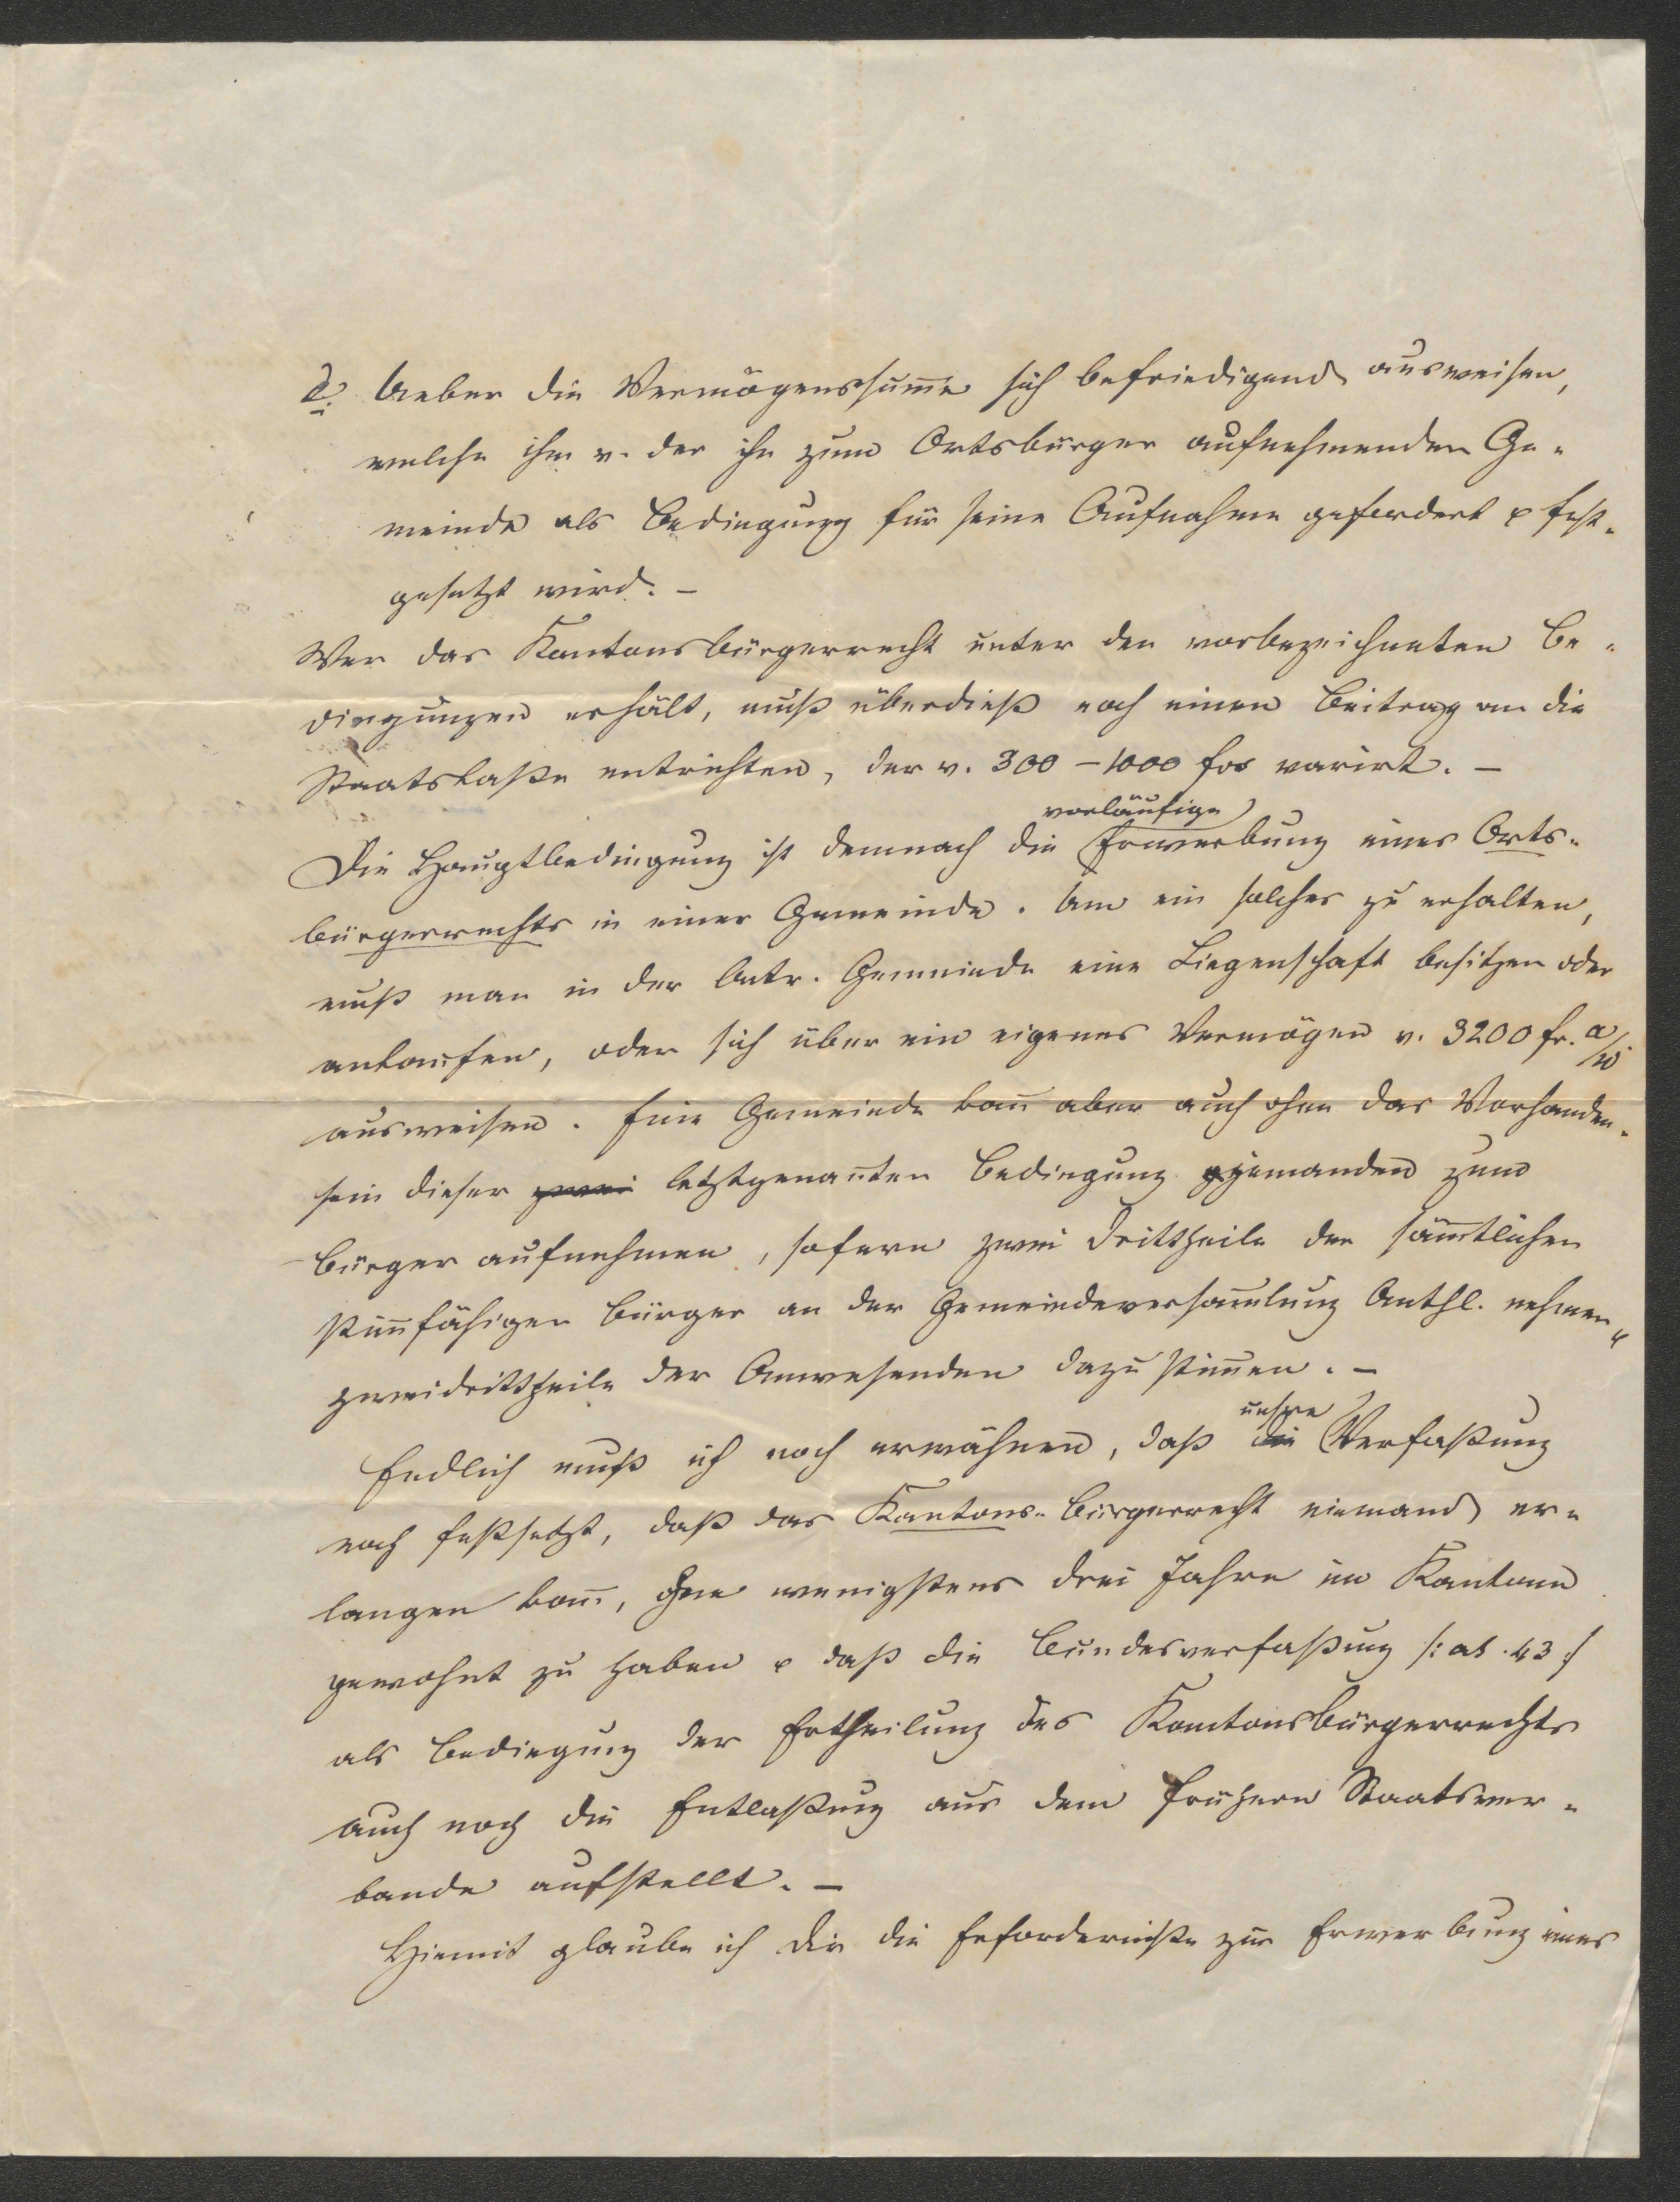 d. Ueber die Vermögenssum̄e sich befriedigend ausweisen,
welche ihm v. der ihn zum Ortsbürger aufnehmenden Ge-
meinde als Bedingung für seine Aufnahme gefordert & fest-
gesetzt wird. –
Wer das Kantonsbürgerrecht unter den vorbezeichneten Be-
dingungen erhält, muß überdieß noch einen Beitrag an die
Staatskaße entrichten, der v. 300 – 1000 frs varirt. –
vorläufige
Die Hauptbedingung ist demnach die Erwerbung eines Orts-
bürgerrechts in einer Gemeinde. Um ein solches zu erhalten,
muß man in der betr. Gemeinde eine Liegenschaft besitzen oder
ankaufen, oder sich über ein eigenes Vermögen v. 3200 fr. a/W
ausweisen. Eine Gemeinde kan̄ aber auch ohne das Vorhanden-
sein dieser zwei letztgenan̄ten Bedingung jemanden zum
Bürger aufnehmen, sofern zwei Drittheile der säm̄tlichen
stim̄fähigen Bürger an der Gemeindeversam̄lung Anthl. nehmen &
zweidrittheile der Anwesenden dazu stim̄en. –
unsre
Endlich muß ich noch erwähnen, daß die Verfaßung
noch festsetzt, daß das Kantons-Bürgerrecht niemand er-
langen kan̄, ohne wenigstens drei Jahre im Kantone
gewohnt zu haben & daß die Bundesverfaßung /: at. 43 :/
als Bedingung der Ertheilung des Kantonsbürgerrechts
auch noch die Entlaßung aus dem frühern Staatsver-
bande aufstellt. –
Hiemit glaube ich Dir die Erforderniße zur Erwerbung eines